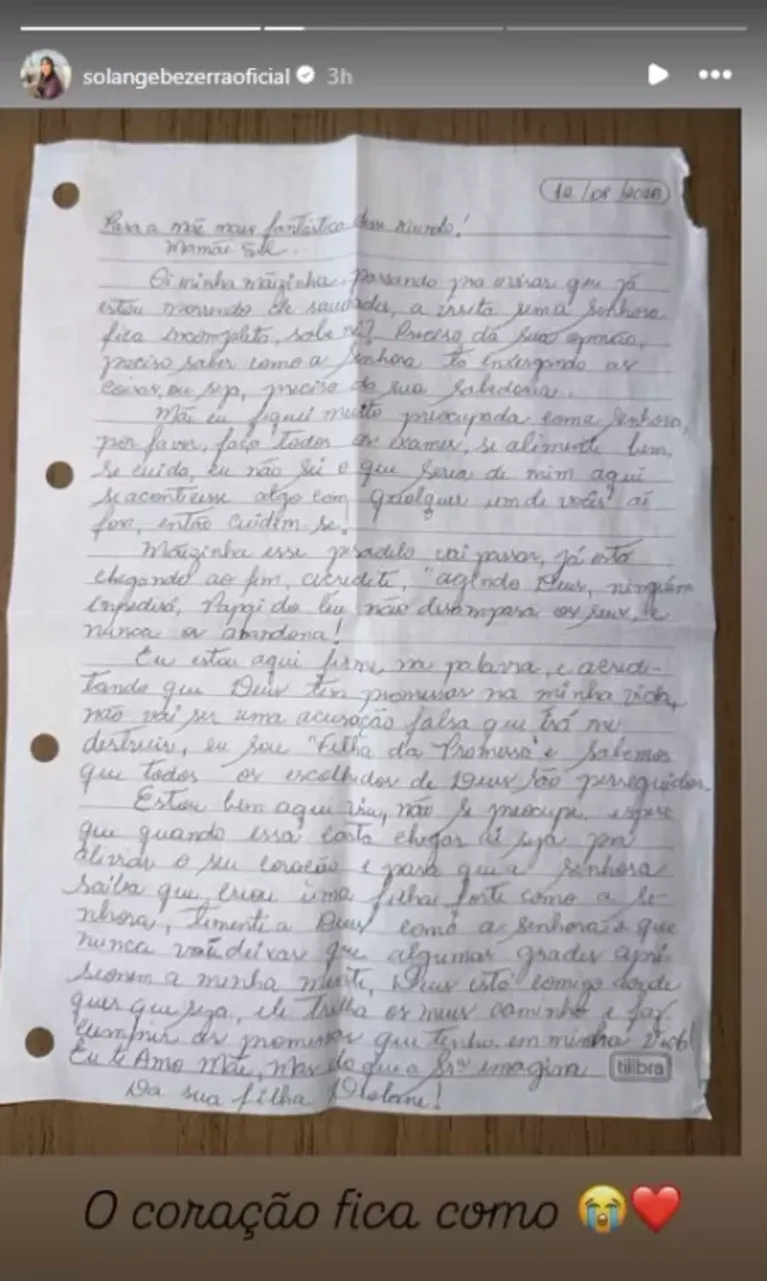 solangebezerraoficial 3h
12/08/2026
Para a mãe mais fantástica desse mundo!
Mamãe Sol...
Oi minha mãizinha, passando pra avisar que já
estou morrendo de saudades, a visita sem a Senhora
fica incompleta, sabe né? Preciso da sua opinião,
preciso saber como a Senhora tá enxergando as
coisas, ou seja, preciso da sua Sabedoria.
Mãe eu fiquei muito preocupada com a Senhora,
por favor, faça todos os exames, se alimente bem,
se cuida, eu não sei o que seria de mim aqui
se acontecesse algo com qualquer um de vocês aí
fora, então cuidem-se!
Mãizinha esse pesadelo vai passar, já está
chegando ao fim, acredite, "agindo Deus, ninguém
impedirá, Papai do Céu não desampara os seus, e
nunca os abandona!
Eu estou aqui firme na palavra, e acredi-
tando que Deus tem promessas na minha vida,
não vai ser uma acusação falsa que irá me
destruir, eu sou "Filha da Promessa" e sabemos
que todos os escolhidos de Deus são perseguidos.
Estou bem aqui viu, não se preocupe, espero
que quando essa carta chegar aí seja pra
aliviar o seu coração e para que a senhora
saiba que criou uma filha forte como a se-
nhora, temente a Deus como a senhora e que
nunca vai deixar que algumas grades apri
sionem a minha mente, Deus está comigo onde
quer que seja, ele trilha os meus caminhos e faz
cumprir as promessas que tenho em minha vida!
Eu te Amo Mãe, mas do que a Srª imagina
tilibra
Da sua filha Deolane!
O coração fica como 😭❤️